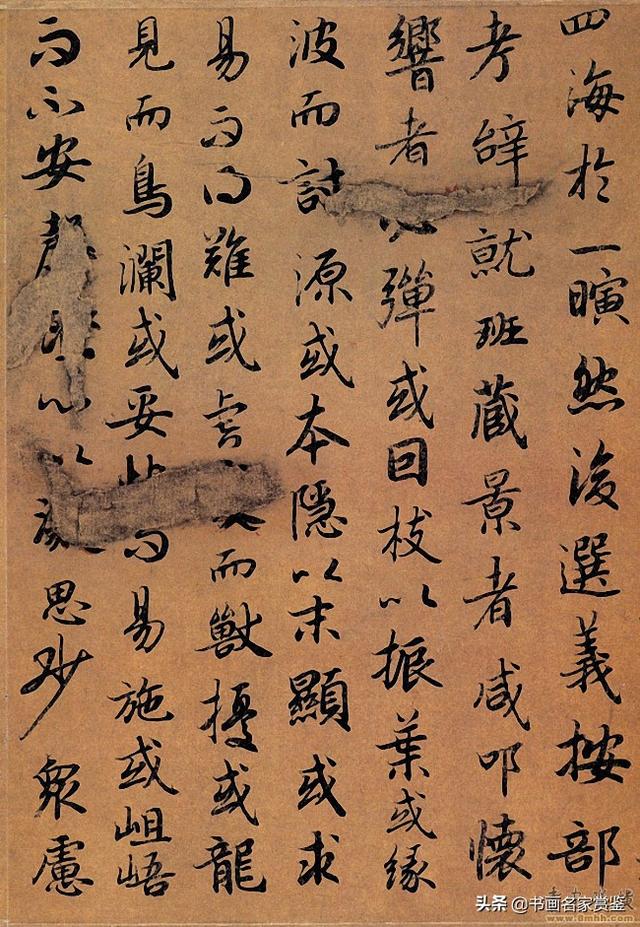 四海於一瞚然後選義按部
考辭就班藏景者咸叩懷
響者彈或因枝以振葉或緣
波而討源或本隱以末顯或求
易而得難或虎而獸擾或龍
見而鳥瀾或妥而易施或岨峿
而不安心以思眇衆慮
头条 @书画名家赏鉴
www.8mhh.com